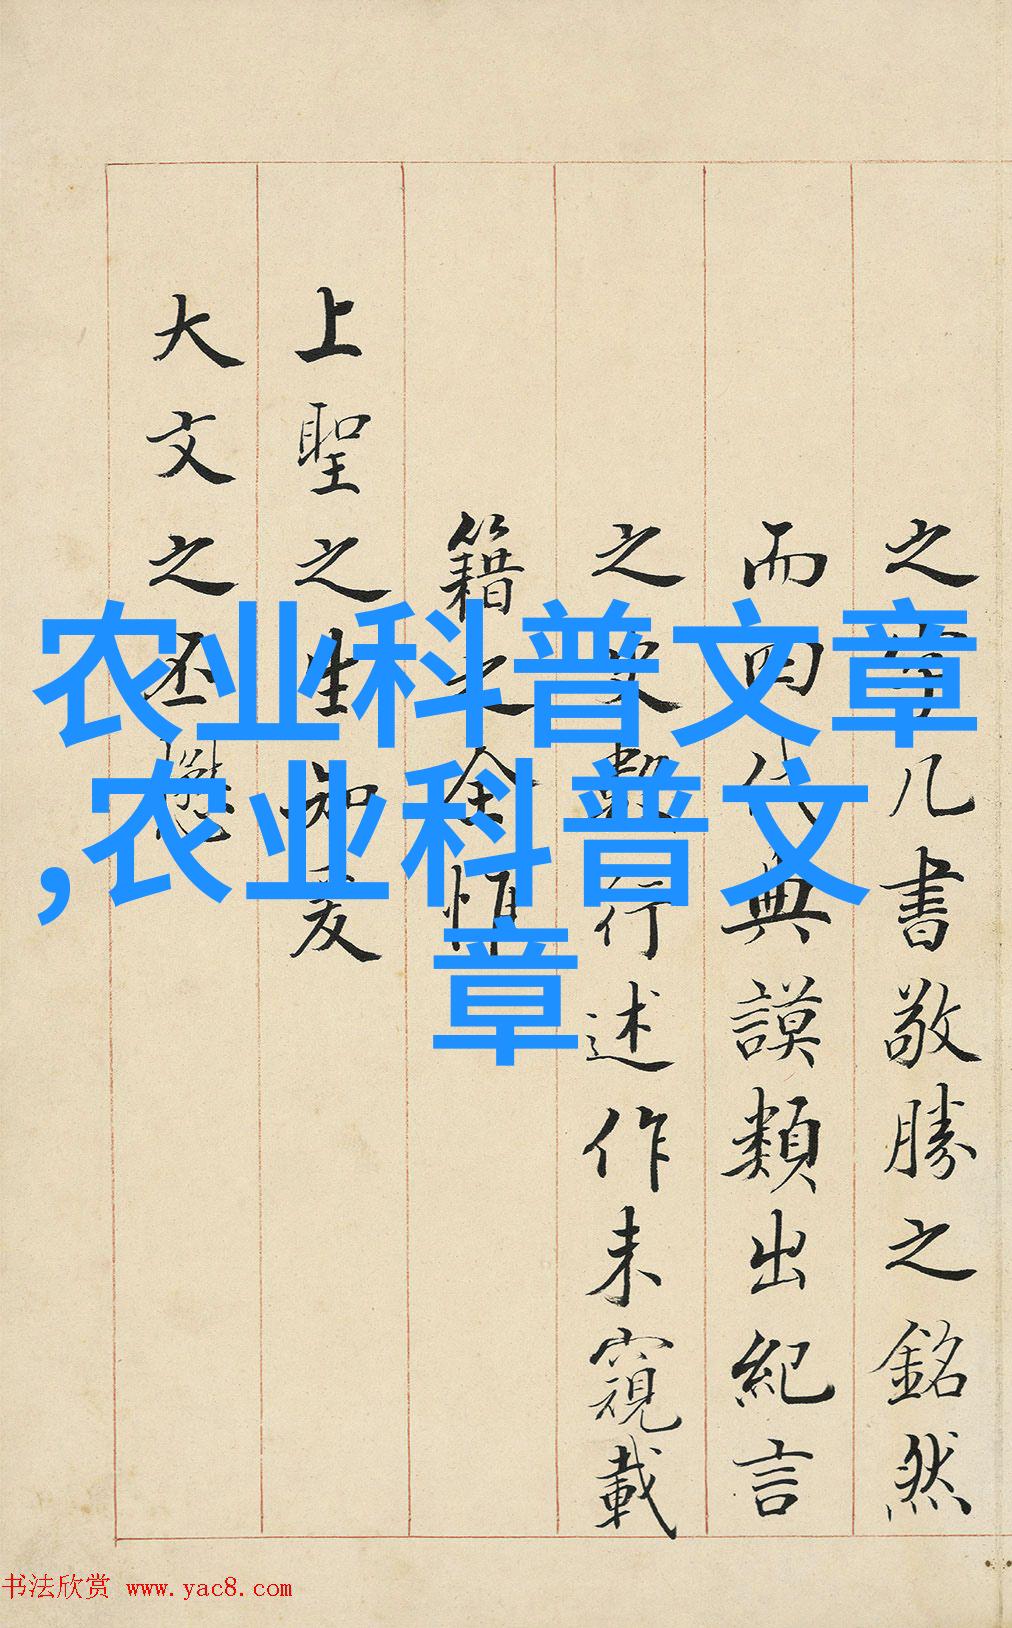 之席几書敬勝之銘然
而四代典謨類出紀言
之史繫行述作未窺載
籍之全惟
上聖之生知爰
大文之丕
农业科普文章
,农业科普文
章
书法欣赏 www.yac8.com